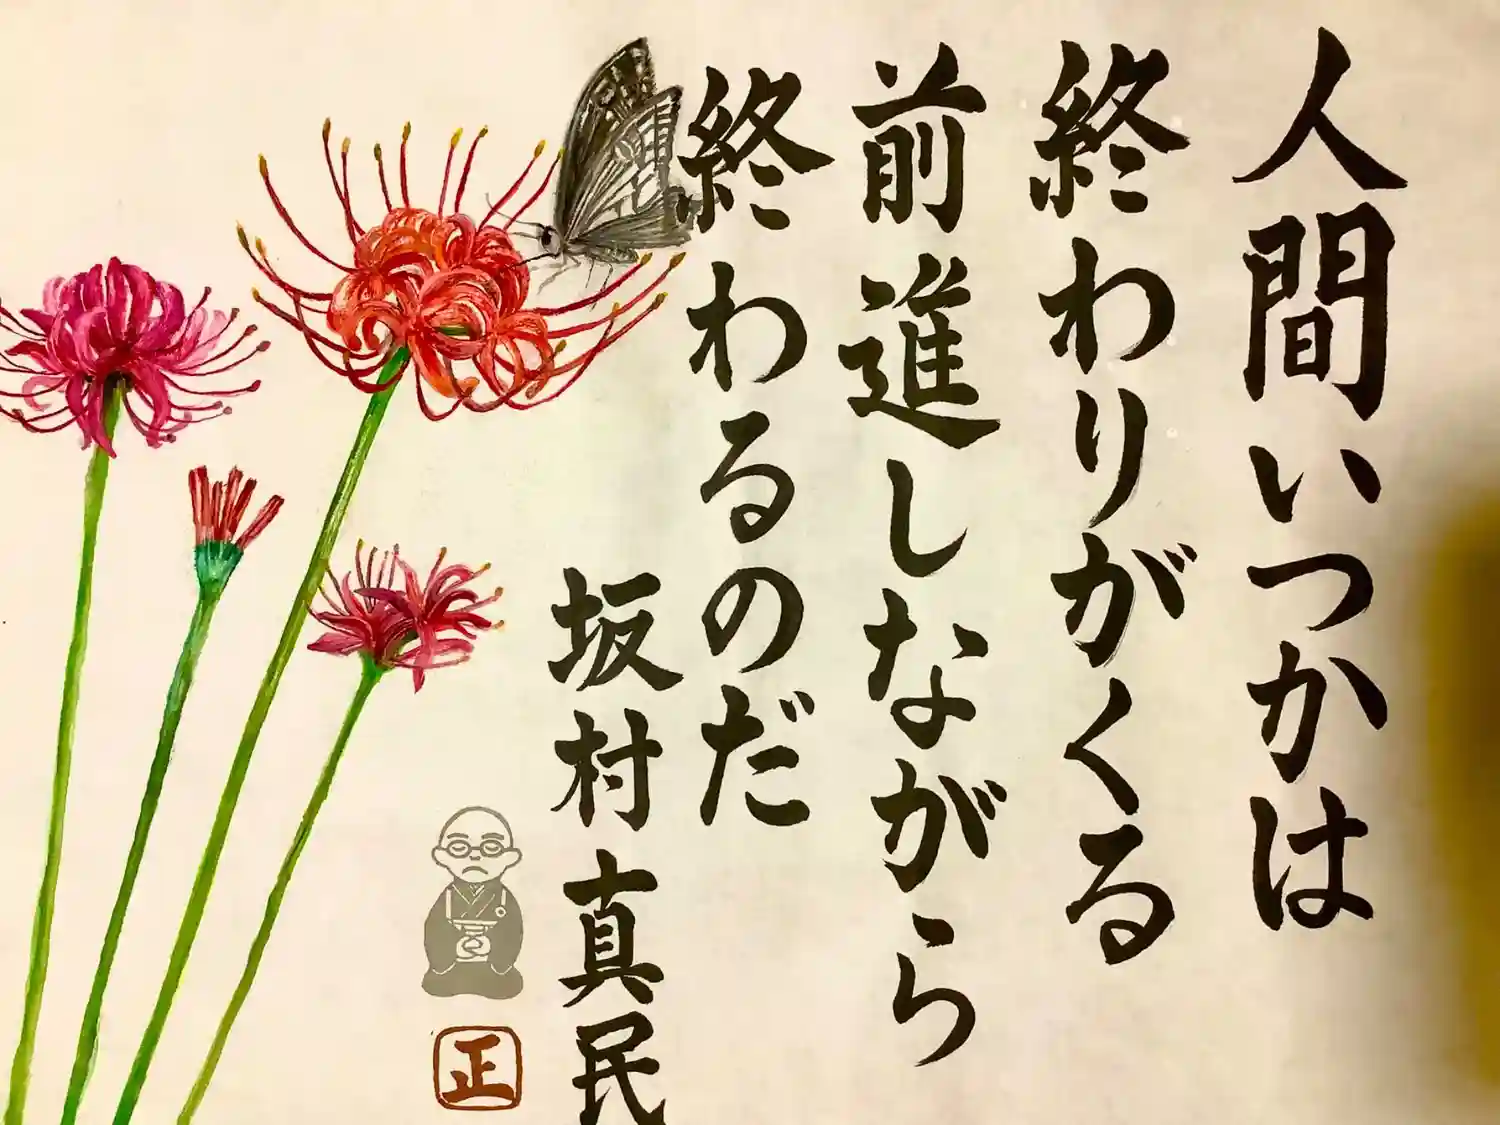 人間いつかは
終わりがくる
前進しながら
終わるのだ
坂村真民
正